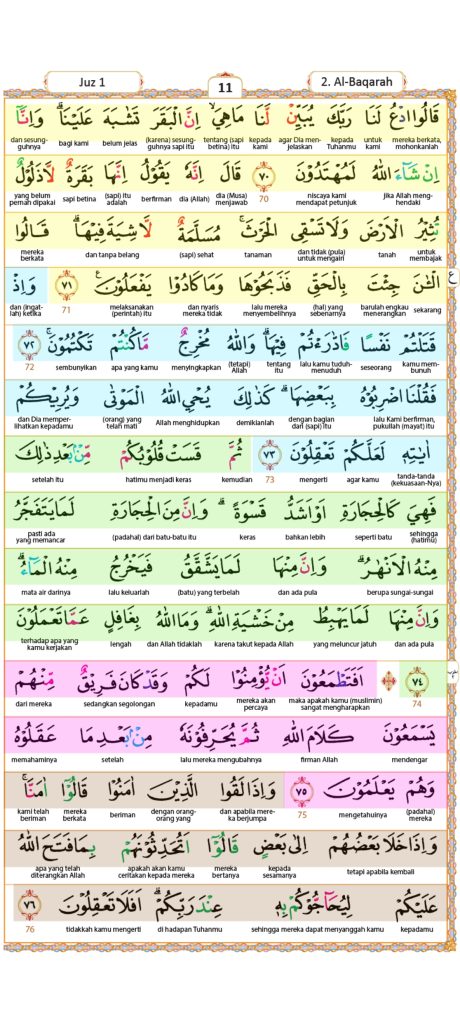 Juz 1
11
2. Al-Baqarah
قَالُوا ادْعُ لَنَا رَبَّكَ يُبَيِّنْ لَّنَا مَا هِيَۙ اِنَّ الْبَقَرَ تَشٰبَهَ عَلَيْنَاۗ وَاِنَّآ
mereka berkata, mohonkanlah untuk kami kepada Tuhanmu agar Dia menjelaskan kepada kami tentang (sapi betina) itu (karena) sesungguhnya sapi itu belum jelas bagi kami dan sesungguhnya
اِنْ شَاۤءَ اللّٰهُ لَمُهْتَدُوْنَ ٧٠ قَالَ اِنَّهٗ يَقُوْلُ اِنَّهَا بَقَرَةٌ لَّا ذَلُوْلٌ
jika Allah menghendaki niscaya kami mendapat petunjuk 70 dia (Musa) menjawab dia (Allah) berfirman (sapi) itu adalah sapi betina yang belum pernah dipakai
تُثِيْرُ الْاَرْضَ وَلَا تَسْقِى الْحَرْثَۚ مُسَلَّمَةٌ لَّا شِيَةَ فِيْهَاۗ قَالُوا
untuk membajak tanah dan tidak (pula) untuk mengairi tanaman (sapi) sehat dan tanpa belang mereka berkata
الْـٰٔنَ جِئْتَ بِالْحَقِّ فَذَبَحُوْهَا وَمَا كَادُوْا يَفْعَلُوْنَ ٧١ وَاِذْ
ع
sekarang barulah engkau menerangkan (hal) yang sebenarnya lalu mereka menyembelihnya dan nyaris mereka tidak melaksanakan (perintah) itu 71 dan (ingatlah) ketika
قَتَلْتُمْ نَفْسًا فَادّٰرَءْتُمْ فِيْهَاۗ وَاللّٰهُ مُخْرِجٌ مَّا كُنْتُمْ تَكْتُمُوْنَۚ ٧٢
kamu membunuh seseorang lalu kamu tuduh-menuduh tentang itu (tetapi) Allah menyingkapkan apa yang kamu sembunyikan 72
فَقُلْنَا اضْرِبُوْهُ بِبَعْضِهَاۗ كَذٰلِكَ يُحْيِ اللّٰهُ الْمَوْتٰى وَيُرِيْكُمْ
lalu Kami berfirman, pukullah (mayat) itu dengan bagian dari (sapi) itu demikianlah Allah menghidupkan (orang) yang telah mati dan Dia memperlihatkan kepadamu
اٰيٰتِهٖ لَعَلَّكُمْ تَعْقِلُوْنَ ٧٣ ثُمَّ قَسَتْ قُلُوْبُكُمْ مِّنْۢ بَعْدِ ذٰلِكَ
tanda-tanda (kekuasaan-Nya) agar kamu mengerti 73 kemudian hatimu menjadi keras setelah itu
فَهِيَ كَالْحِجَارَةِ اَوْ اَشَدُّ قَسْوَةًۗ وَاِنَّ مِنَ الْحِجَارَةِ لَمَا يَتَفَجَّرُ
sehingga (hatimu) seperti batu bahkan lebih keras (padahal) dari batu-batu itu pasti ada yang memancar
مِنْهُ الْاَنْهٰرُۗ وَاِنَّ مِنْهَا لَمَا يَشَّقَّقُ فَيَخْرُجُ مِنْهُ الْمَاۤءُۗ
berupa sungai-sungai dan ada pula (batu) yang terbelah lalu keluarlah mata air darinya
وَاِنَّ مِنْهَا لَمَا يَهْبِطُ مِنْ خَشْيَةِ اللّٰهِۗ وَمَا اللّٰهُ بِغَافِلٍ عَمَّا تَعْمَلُوْنَ
dan ada pula yang meluncur jatuh karena takut kepada Allah dan Allah tidaklah lengah terhadap apa yang kamu kerjakan
٧٤ اَفَتَطْمَعُوْنَ اَنْ يُّؤْمِنُوْا لَكُمْ وَقَدْ كَانَ فَرِيْقٌ مِّنْهُمْ
74 maka apakah kamu (muslimin) sangat mengharapkan mereka akan percaya kepadamu sedangkan segolongan dari mereka
يَسْمَعُوْنَ كَلَامَ اللّٰهِ ثُمَّ يُحَرِّفُوْنَهٗ مِنْۢ بَعْدِ مَا عَقَلُوْهُ
mendengar firman Allah lalu mereka mengubahnya setelah memahaminya
وَهُمْ يَعْلَمُوْنَ ٧٥ وَاِذَا لَقُوا الَّذِيْنَ اٰمَنُوْا قَالُوْٓا اٰمَنَّاۚ
(padahal) mereka mengetahuinya 75 dan apabila mereka berjumpa dengan orang-orang yang beriman mereka berkata kami telah beriman
وَاِذَا خَلَا بَعْضُهُمْ اِلٰى بَعْضٍ قَالُوْٓا اَتُحَدِّثُوْنَهُمْ بِمَا فَتَحَ اللّٰهُ
tetapi apabila kembali kepada sesamanya mereka bertanya apakah akan kamu ceritakan kepada mereka apa yang telah diterangkan Allah
عَلَيْكُمْ لِيُحَاۤجُّوْكُمْ بِهٖ عِنْدَ رَبِّكُمْۗ اَفَلَا تَعْقِلُوْنَ ٧٦
kepadamu sehingga mereka dapat menyanggah kamu di hadapan Tuhanmu tidakkah kamu mengerti 76